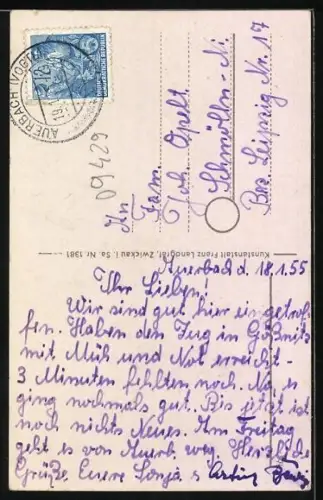 AUERBACH (VOGTL
09429
An
Fam.
Joh. Opelt
Schmölln-Ni
Bez. Leipzig Nr. 17
Kunstanstalt Franz Landgraf, Zwickau i. Sa. Nr. 1381
Auerbach d. 18.1.55
Ihr Lieben!
Wir sind gut hier eingetrof-
fen. Haben den Zug in Gößnitz
mit Müh und Not erreicht -
3 Minuten fehlten noch. Na, es
ging nochmals gut. Bis jetzt ist
noch nichts Neues. Am Freitag
geht es von Auerb. weg. Herzliche
Grüße Euere Sonja